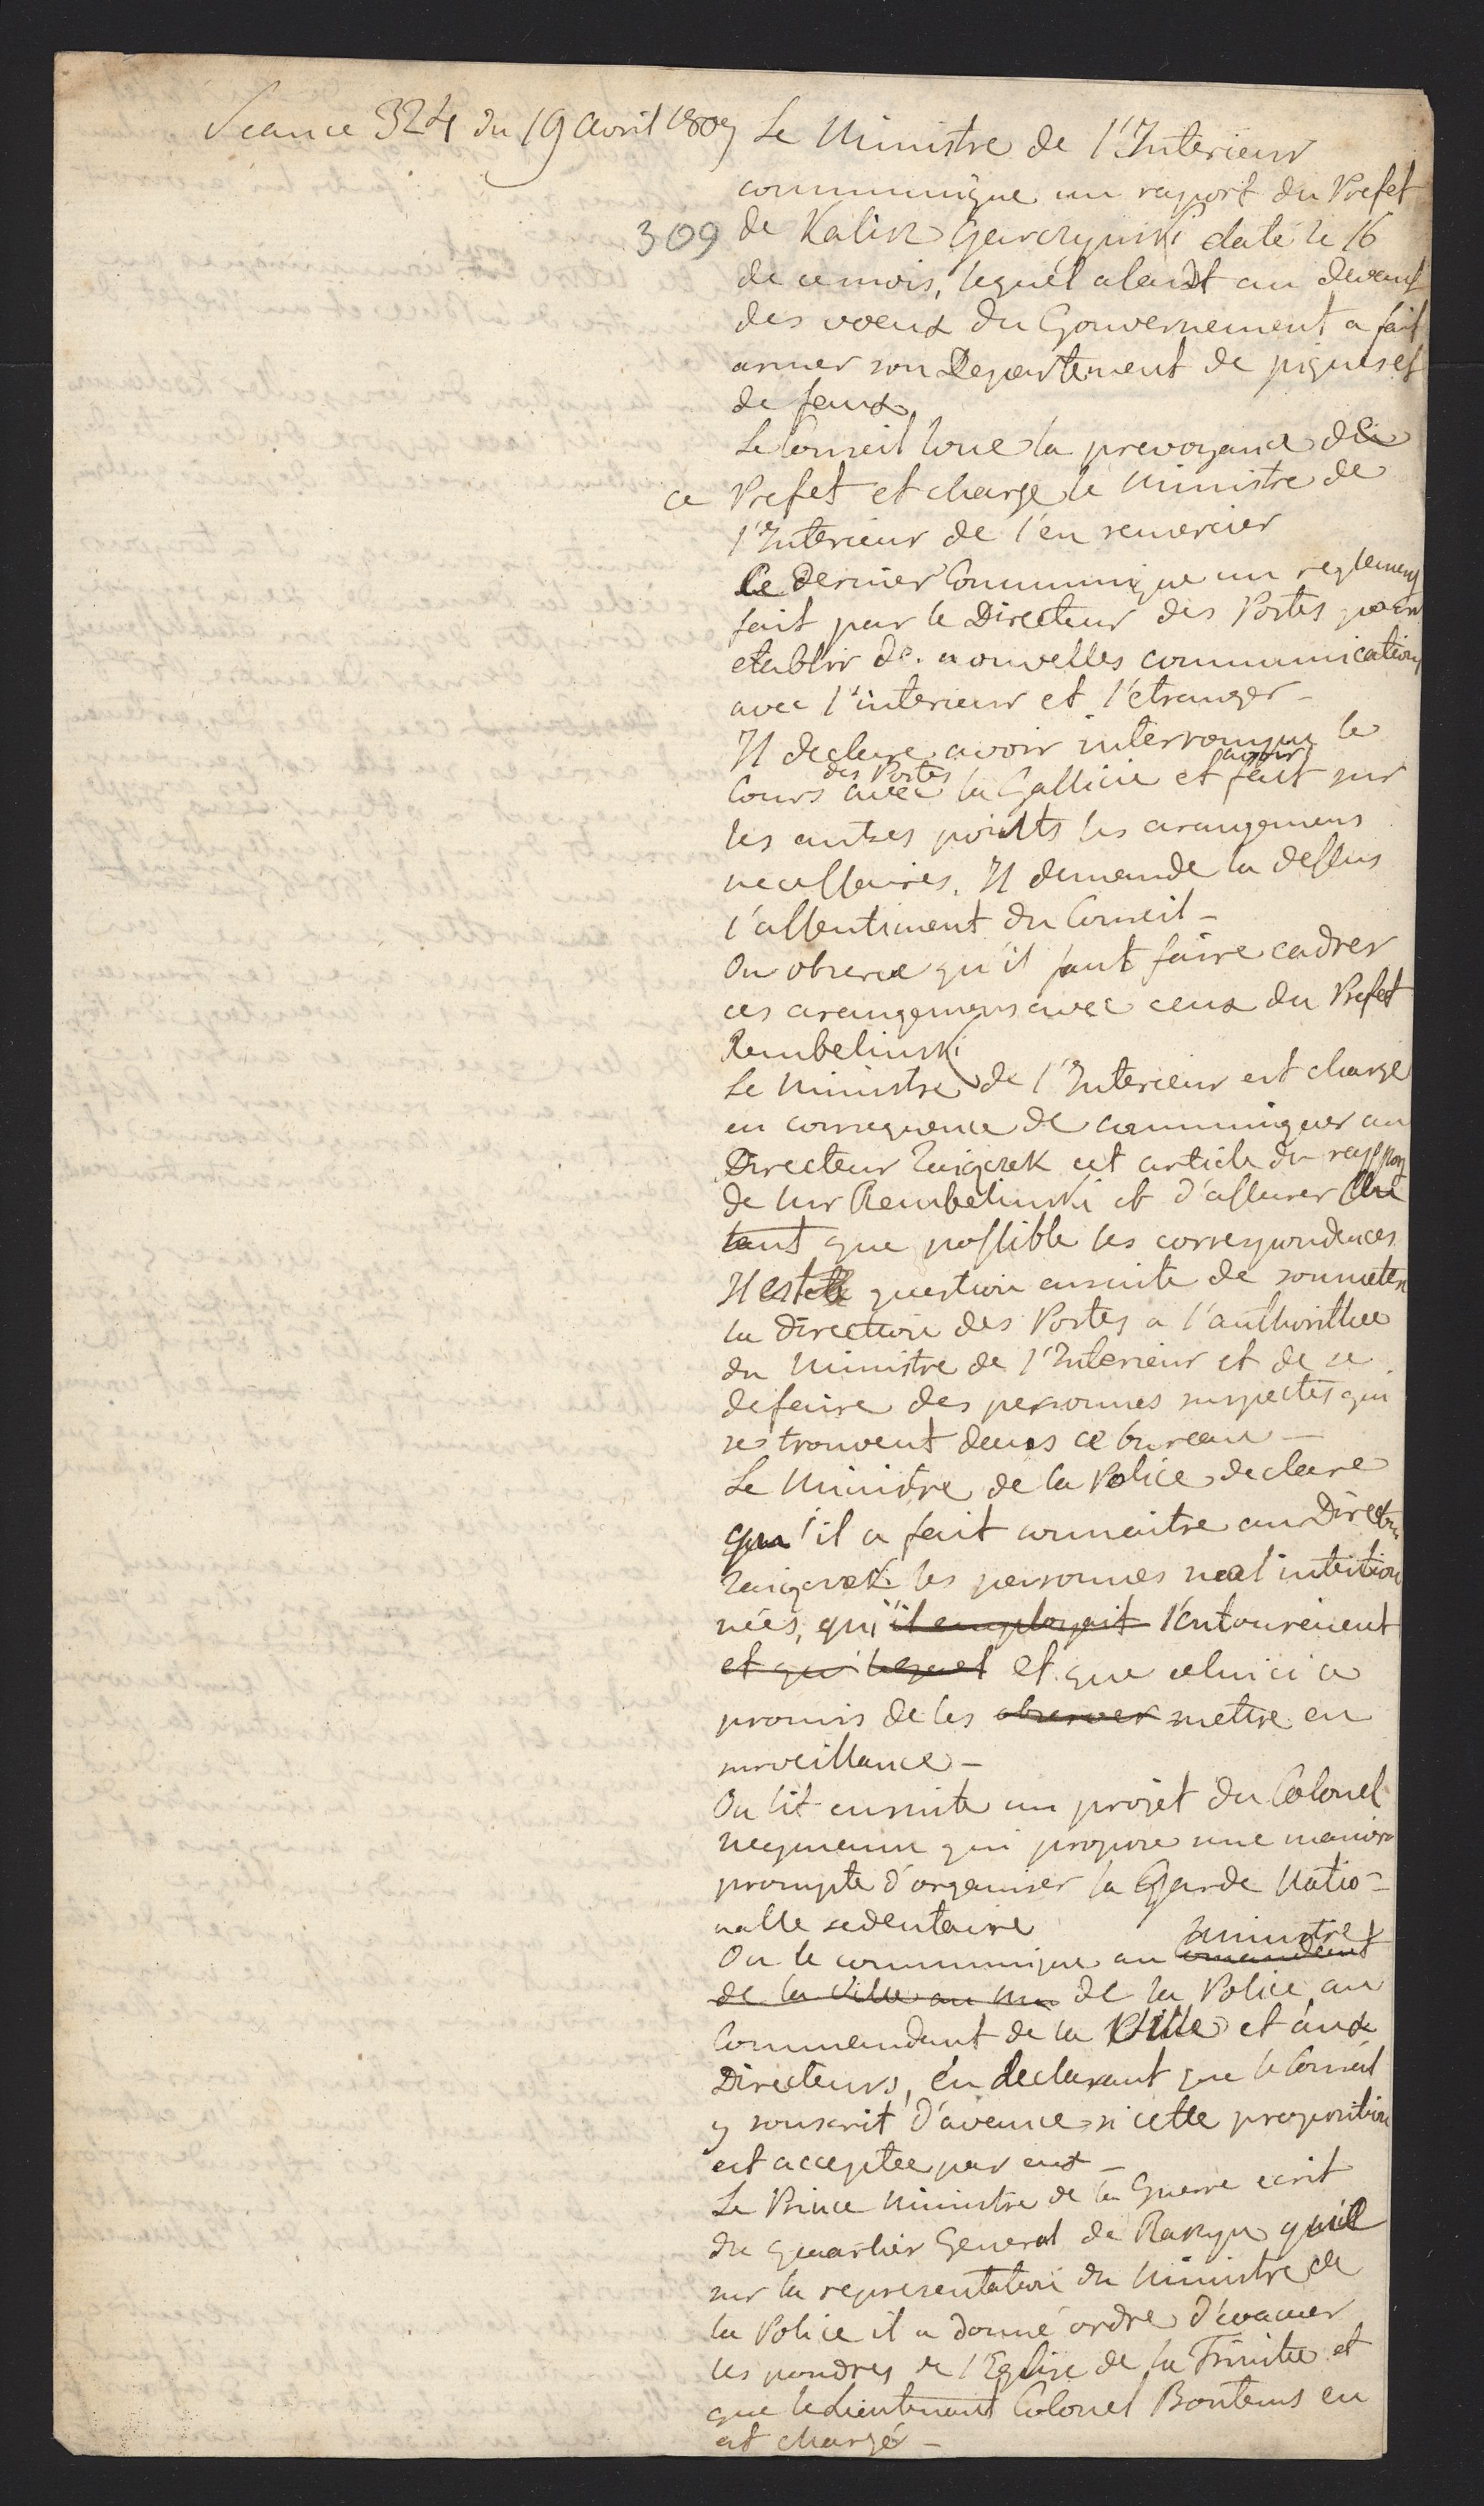 Seance 324 du 19 Avril 1809
309
Le Ministre de l'Interieur
communique un raport du Prefet
de Kalisz Garczynski daté le 16
de ce mois, lequel alant au devant
des voeux du Gouvernement a fait
armer son Departement de piques et
de faux.
Le Conseil loue la prevoyance de
ce Prefet et charge le Ministre de
l'Interieur de l'en remercier
Ce dernier Communique un reglement
fait par le Directeur des Postes pour
etablir de nouvelles communications
avec l'interieur et l'etranger –
Il declare avoir interrompu le
Cours des Postes avec la Gallicie et avoir fait sur
les autres points les arangemens
necessaires. Il demande la dessus
l'assentiment du Conseil –
On observe qu'il faut faire cadrer
ces arangemens avec ceux du Prefet
Rembelinski
Le Ministre de l'Interieur est chargé
en consequence de communiquer au
Directeur Zaigczek cet article du rapport
de Mr Rembelinski et d'assurer
tant que possible les correspondences
Il est question ensuite de soumeter
la Direction des Postes a l'authorithee
du Ministre de l'Interieur et de se
defaire des personnes suspectes qui
se trouvent dans ce bureau –
Le Ministre de la Police declare
qu'il a fait connaitre au Directeur
Zaigczek les personnes mal intention
nées, qui il employait l'entourenent
et qui lequel et que celui ci a
promis de les observer mettre en
surveillance –
On lit ensuite un projet du Colonel
Neymann qui propose une maniere
prompte d'organiser la Garde Natio-
nalle sedentaire
On le communique au comandant Ministre
de la Ville au de la Police, au
Commendant de la Ville et aux
Directeurs, en declarant que le Conseil
y souscrit d'avance si cette proposition
est acceptée par eux –
Le Prince Ministre de la Guerre ecrit
du quartier General de Raszyn qu'il
sur la representation du Ministre de
la Police il a donné ordre d'evacuer
les poudres de l'Eglise de la Trinitee et
que le Lieutenant Colonel Bontems en
est chargé –